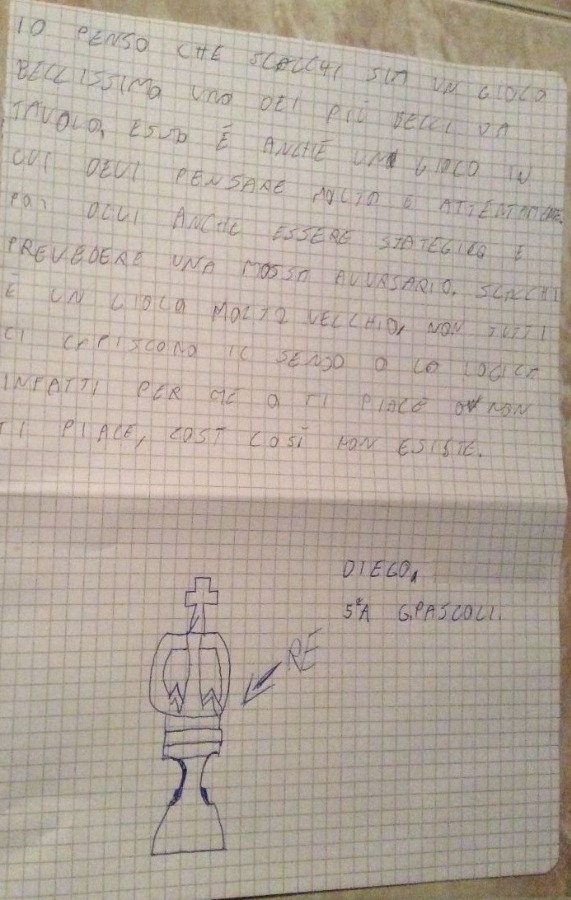 IO PENSO CHE SCACCHI SIA UN GIOCO
BELLISSIMO UNO DEI PIÙ BELLI DA
TAVOLO, ESSO È ANCHE UN GIOCO IN
CUI DEVI PENSARE MOLTO E
POI DEVI ANCHE ESSERE STATEGICO E
PREVEDERE UNA MOSSA AVVRSARIO. SCACCHI
È UN GIOCO MOLTO VECCHIO, NON TUTTI
CI CAPISCONO IL SENSO O LA LOGICA
INFATTI PER ME O TI PIACE O NON
TI PIACE, COSÌ COSÌ NON ESISTE.
DIEGO,
5ªA G.PASCOLI.
RE